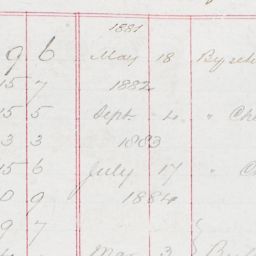 1881
9 6 May 18 By
15 7 1882
15 5 Sept. 4 "
3 3 1883
15 6 July 17 "
0 9 1884
9 7
Mar 3